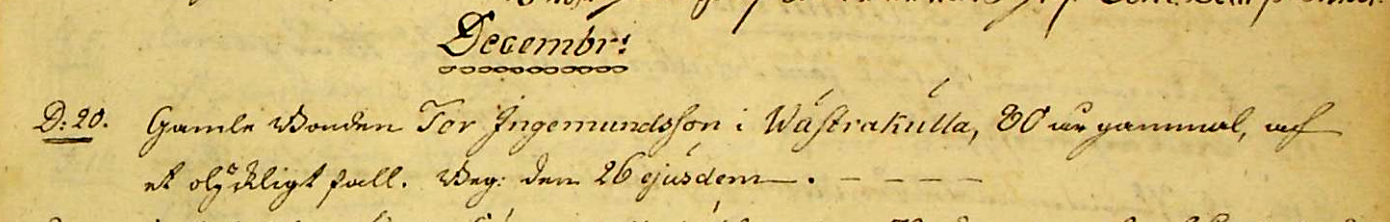 Decembr:
D: 20. Gamle Bonden Tor Ingemundsson i Wästrakulla, 80 år gammal, af
et olyckligt fall. Beg: den 26 ejusdem.